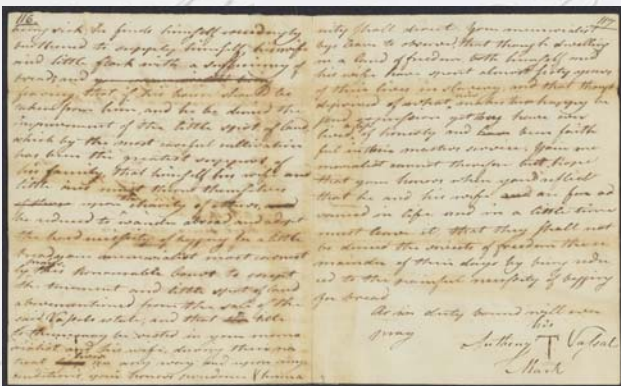 116
being sick, he finds himself exceedingly
burthened to supply himself his wife
and little flock with a sufficiency of
bread, and
fearing that if his house should be
taken from him, and he be denied the
improvement of the little spot of land
which by the most careful cultivation
has been the greatest support of
his family that himself his wife and
little ones must throw themselves
upon charity of others, and
be reduced to wander abroad and adopt
the hard necessity of begging for a little
bread, your memorialist most earnest
ly prays this honourable Court to except
the tenement and little spot of land
abovementioned from the sale of the
said Vassals estate, and that title
to them may be vested in your memo
rialist and his wife, during their na
tural lives in any way and upon any
conditions your honors prudence & huma
117
nity shall direct. Your memorialist
begs leave to observe, that though dwelling
in a land of freedom both himself and
his wife have spent almost sixty years
of their lives in slavery, and that though
deprived of what makes them happy in
past expression yet they have ever
lived of honesty and have been faith
ful in their masters service. Your me
morialist cannot therefore but hope
that your honors when you reflect
that he and his wife are far ad
vanced in life and in a little time
must leave it, that they shall not
be denied the sweets of freedom the re
mainder of their days by being redu
ced to the painful necessity of begging
for bread
As in duty bound will ever
pray
his
Anthony T Vassal
Mark